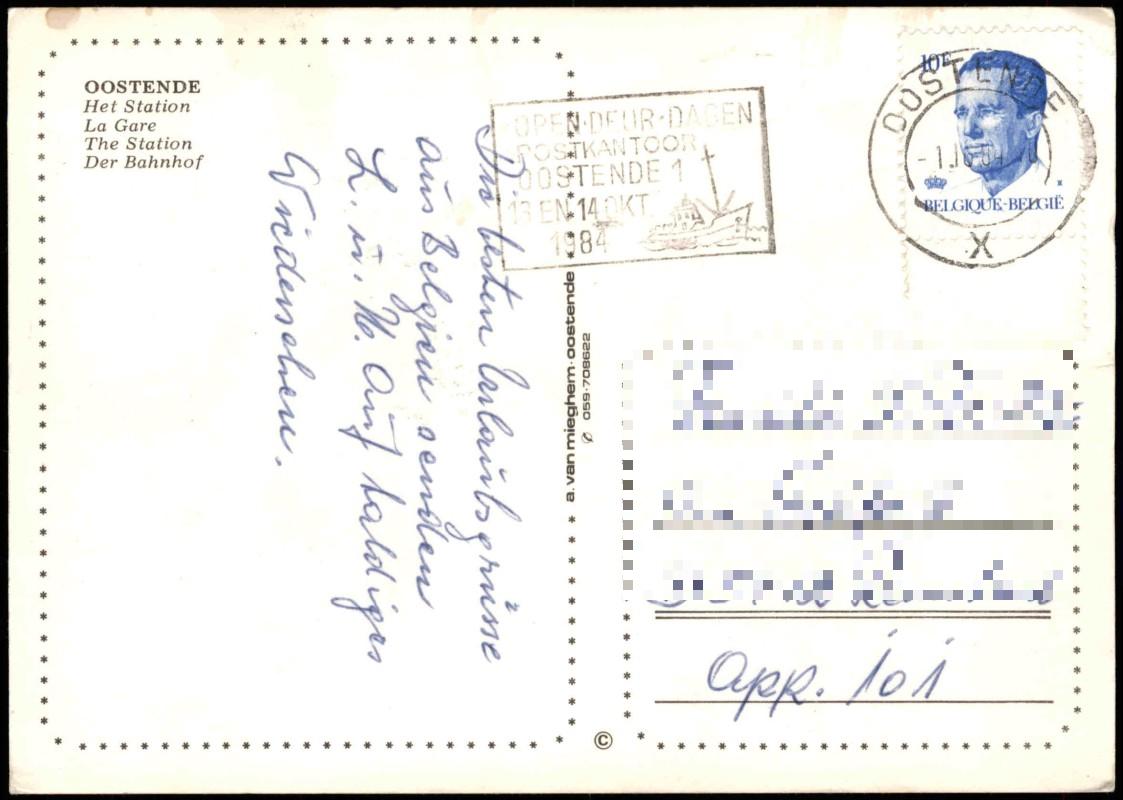 OOSTENDE
Het Station
La Gare
The Station
Der Bahnhof
Die besten Urlaubsgrüsse
aus Belgien senden
L. u. H. Auf baldiges
Wiedersehen.
a. van mieghem · oostende
059-708622
©
OPEN·DEUR·DAGEN
POSTKANTOOR
OOSTENDE 1
13 EN 14 OKT.
1984
10F
BELGIQUE-BELGIË
OOSTENDE
X
App. 101